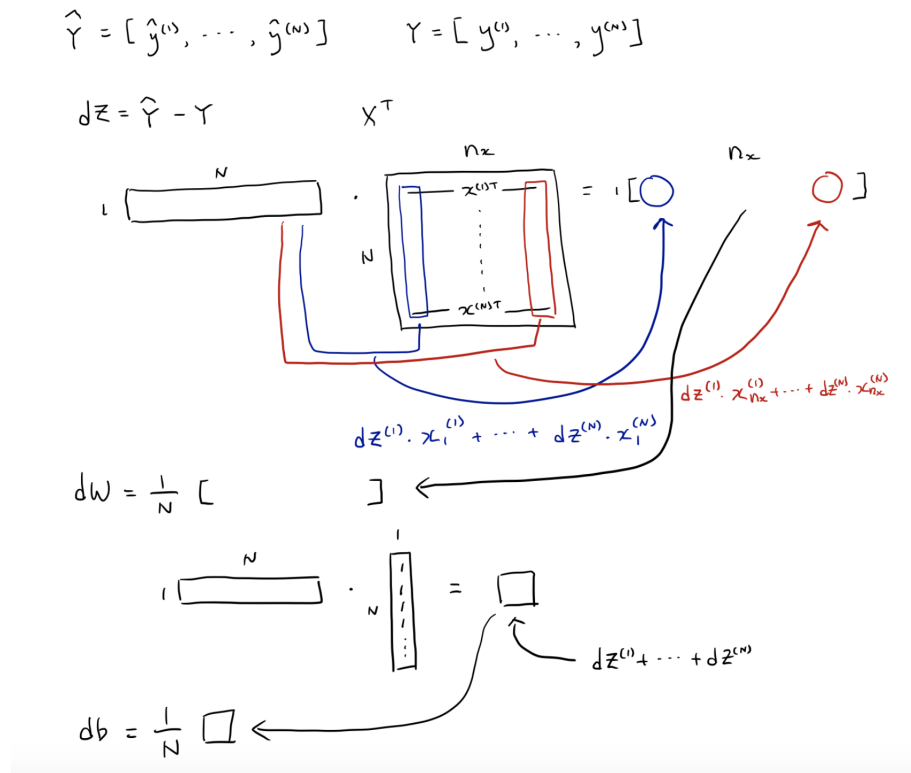 Ŷ = [ ŷ⁽¹⁾, ⋯ , ŷ⁽ᴺ⁾ ] Y = [ y⁽¹⁾, ⋯ , y⁽ᴺ⁾ ]
dZ = Ŷ − Y Xᵀ
N nₓ nₓ
1 · N x⁽¹⁾ᵀ = 1 [ ]
x⁽ᴺ⁾ᵀ
dz⁽¹⁾ · x_{nₓ}⁽¹⁾ + ⋯ + dz⁽ᴺ⁾ · x_{nₓ}⁽ᴺ⁾
dz⁽¹⁾ · x₁⁽¹⁾ + ⋯ + dz⁽ᴺ⁾ · x₁⁽ᴺ⁾
dW = 1/N [ ]
N 1
1 · N 1 1 1 ⋮ =
dz⁽¹⁾ + ⋯ + dz⁽ᴺ⁾
db = 1/N □